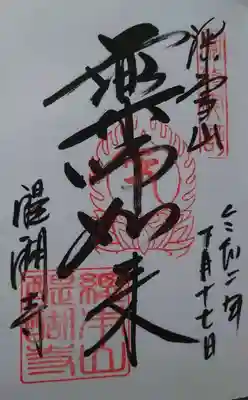 深雪山
薬師如来
醍醐寺
令和二年
月十七日
深雪山
醍醐寺